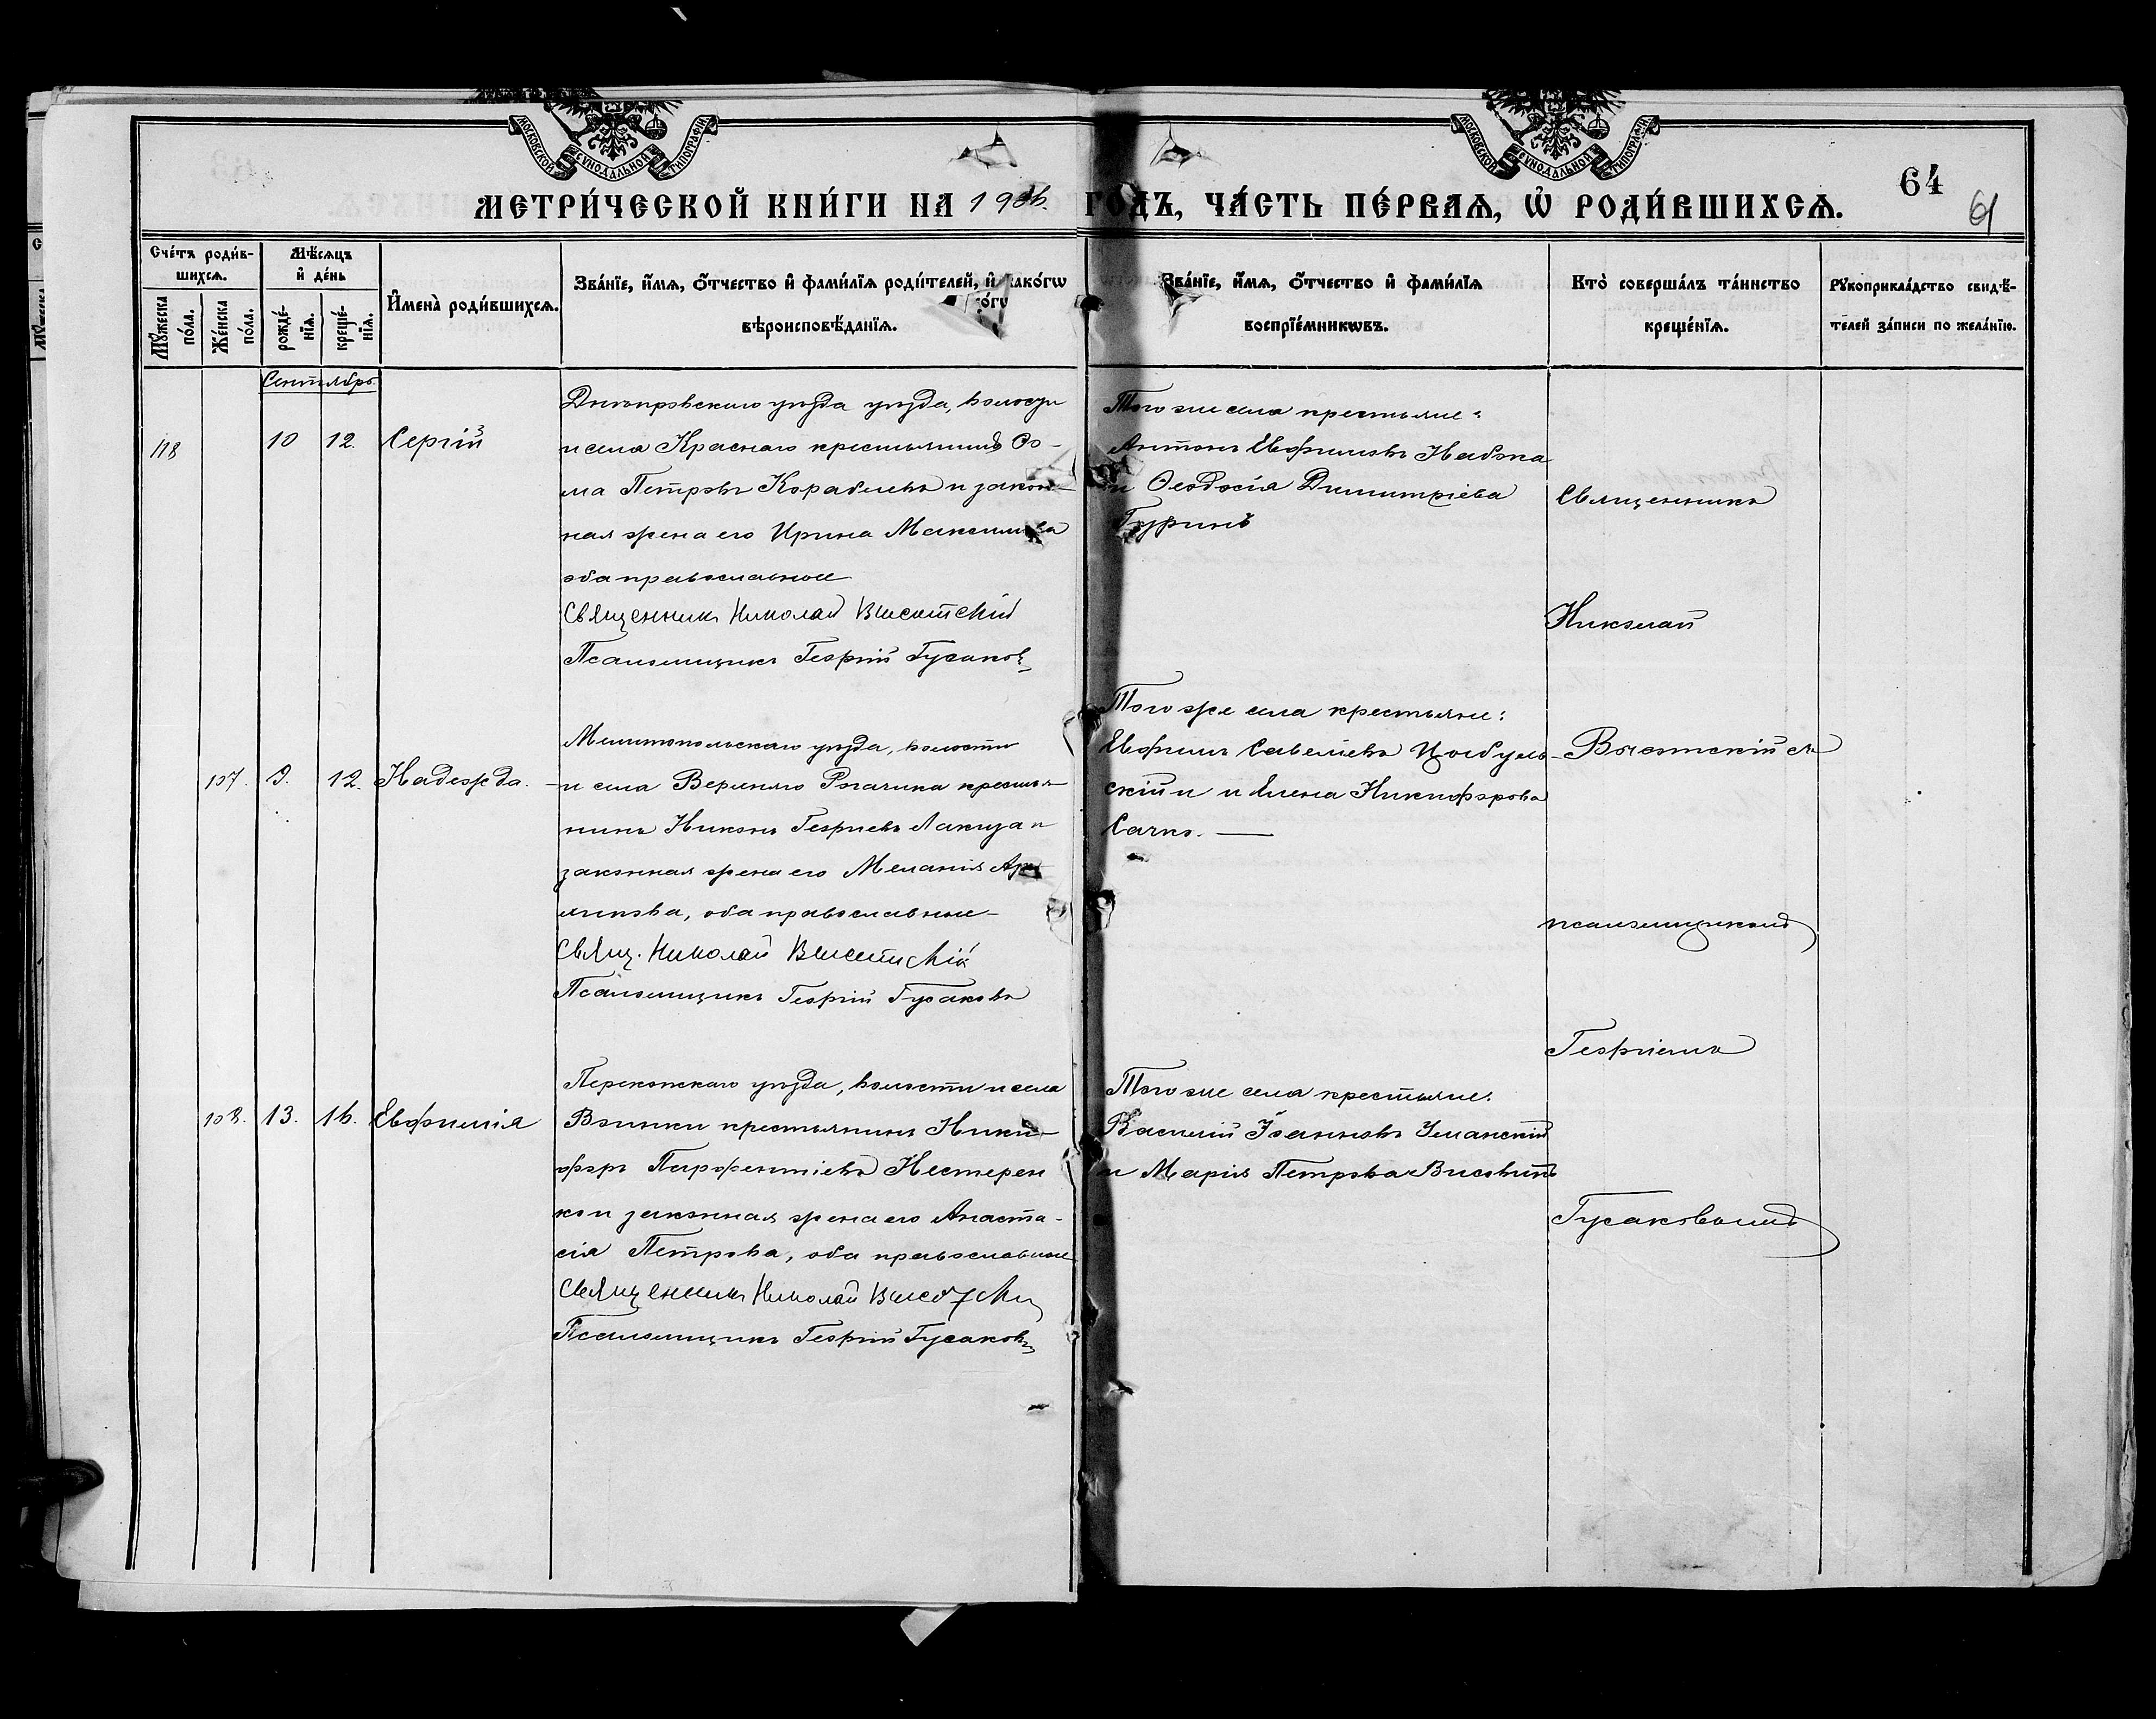 МОСКОВСКОЙ СѴНОДАЛЬНОЙ ТИПОГРАФІИ
МОСКОВСКОЙ СѴНОДАЛЬНОЙ ТИПОГРАФІИ
МЕТРИ́ЧЕСКОЙ КНИ́ГИ НА 190 ГОДЪ, ЧА́СТЬ ПЕ́РВАѦ, Ѡ РОДИ́ВШИХСѦ.
64
61
Сче́тъ роди́в-
шихсѧ.
Мꙋ́жеска по́ла.
Же́нска по́ла.
Мѣ́сѧцъ
и҆ де́нь
рожде́-
нїѧ.
креще́-
нїѧ.
И҆мена̀ роди́вшихсѧ.
Зва́нїе, и҆́мѧ, ѻ҆́тчество и҆ фами́лїѧ роди́телей, и҆ како́гѡ
вѣроисповѣ́данїѧ.
Зва́нїе, и҆́мѧ, ѻ҆́тчество и҆ фами́лїѧ
воспрїе́мникѡвъ.
Кто̀ соверша́лъ та́инство
креще́нїѧ.
Рꙋкоприкла́дство свидѣ́-
телей за́писи по жела́нїю.
Сентябрь
118
10
12.
Сергій
Днѣпровскаго уѣзда уѣзда, волости
и села Краснаго крестьянинъ Ѳо-
ма Петровъ Кораблевъ и закон-
ная жена его Ирина Максимова
оба православные
Священникъ Николай Высотскій
Псаломщикъ Георгій Гусаковъ
Того же села крестьяне:
Антонъ Евфимовъ Набока
и Ѳеодосія Димитріева
Гуринъ
Священникъ
Николай
Высотскій съ
псаломщикомъ
Георгіемъ
Гусаковымъ
107.
9.
12.
Надежда.
Мелитопольскаго уѣзда, волости
и села Верхняго Рогачика крестья-
нинъ Никонъ Георгіевъ Лакиза и
законная жена его Меланія
оба православные
Свящ. Николай Высотскій
Псаломщикъ Георгій Гусаковъ
Того же села крестьяне:
Евфимъ Савеліевъ Цыбуль-
скій и и Елена Никифорова
Сачко.
108.
13.
16.
Евфимія
Перекопскаго уѣзда, волости и села
Воинки крестьянинъ Ники-
форъ Парфентіевъ Нестерен
ко и законная жена его Анаста-
сія Петрова, оба православные
Священникъ Николай Высотскій
Псаломщикъ Георгій Гусаковъ
Того же села крестьяне:
Василій Іоанновъ Уманскій
и Марія Петрова